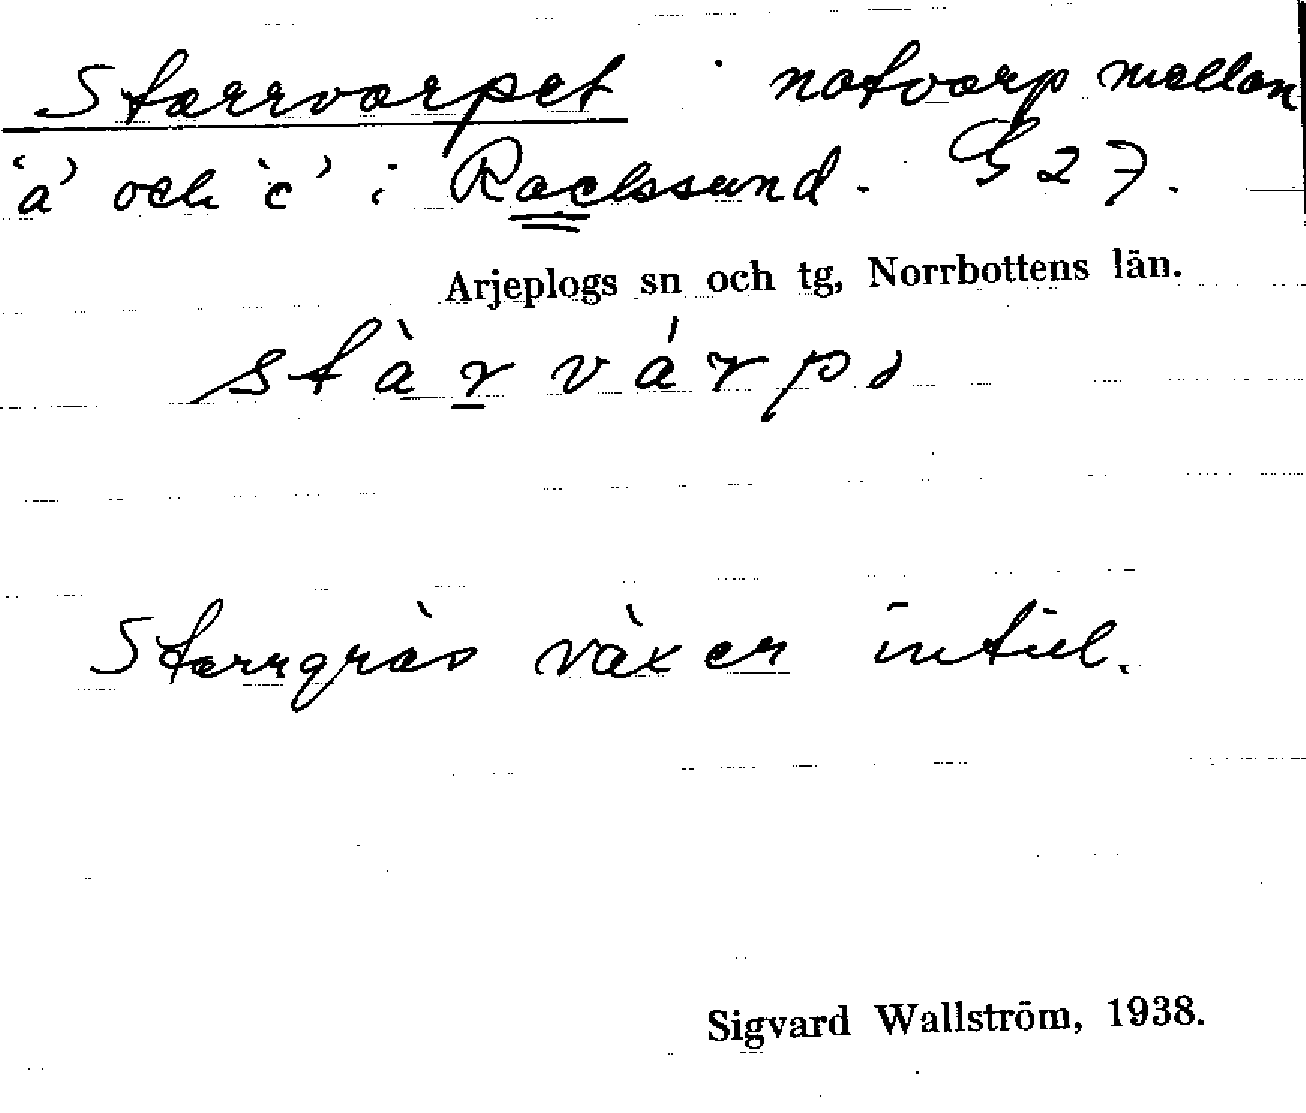 Starrvarpet notvarp mellan
'a' och 'c' i Racksund. G 27.
Arjeplogs sn och tg, Norrbottens län.
stàr várpə
Starrgräs växer intill.
Sigvard Wallström, 1938.